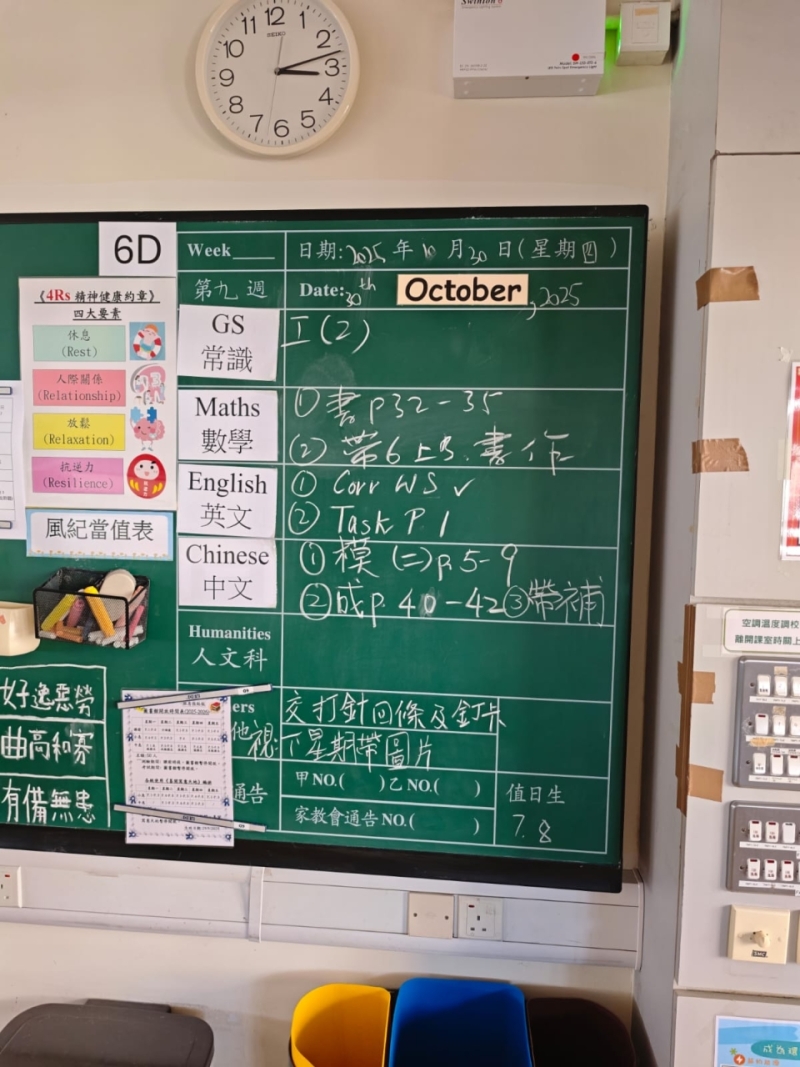 12
1
2
3
4
5
6
7
8
9
10
11
SEIKO
Swinton
6D
Week
日期: 2025 年 10 月 30 日(星期四)
第九週
Date: 30th October, 2025
《4Rs 精神健康約章》
四大要素
休息
(Rest)
人際關係
(Relationship)
放鬆
(Relaxation)
抗逆力
(Resilience)
風紀當值表
GS
常識
工(2)
Maths
數學
① 書 p32-35
② 帶6上B.書作
English
英文
① Corr WS ✓
② Task P 1
Chinese
中文
① 模(二)p.5-9
② 成p.40-42 ③帶補
Humanities
人文科
ers
他
交打針回條及針卡
視:下星期帶圖片
通告
甲 NO.( ) 乙 NO.( )
家教會通告 NO.( )
值日生
7. 8
好逸惡勞
曲高和寡
有備無患
空調溫度調校
離開課室時關上